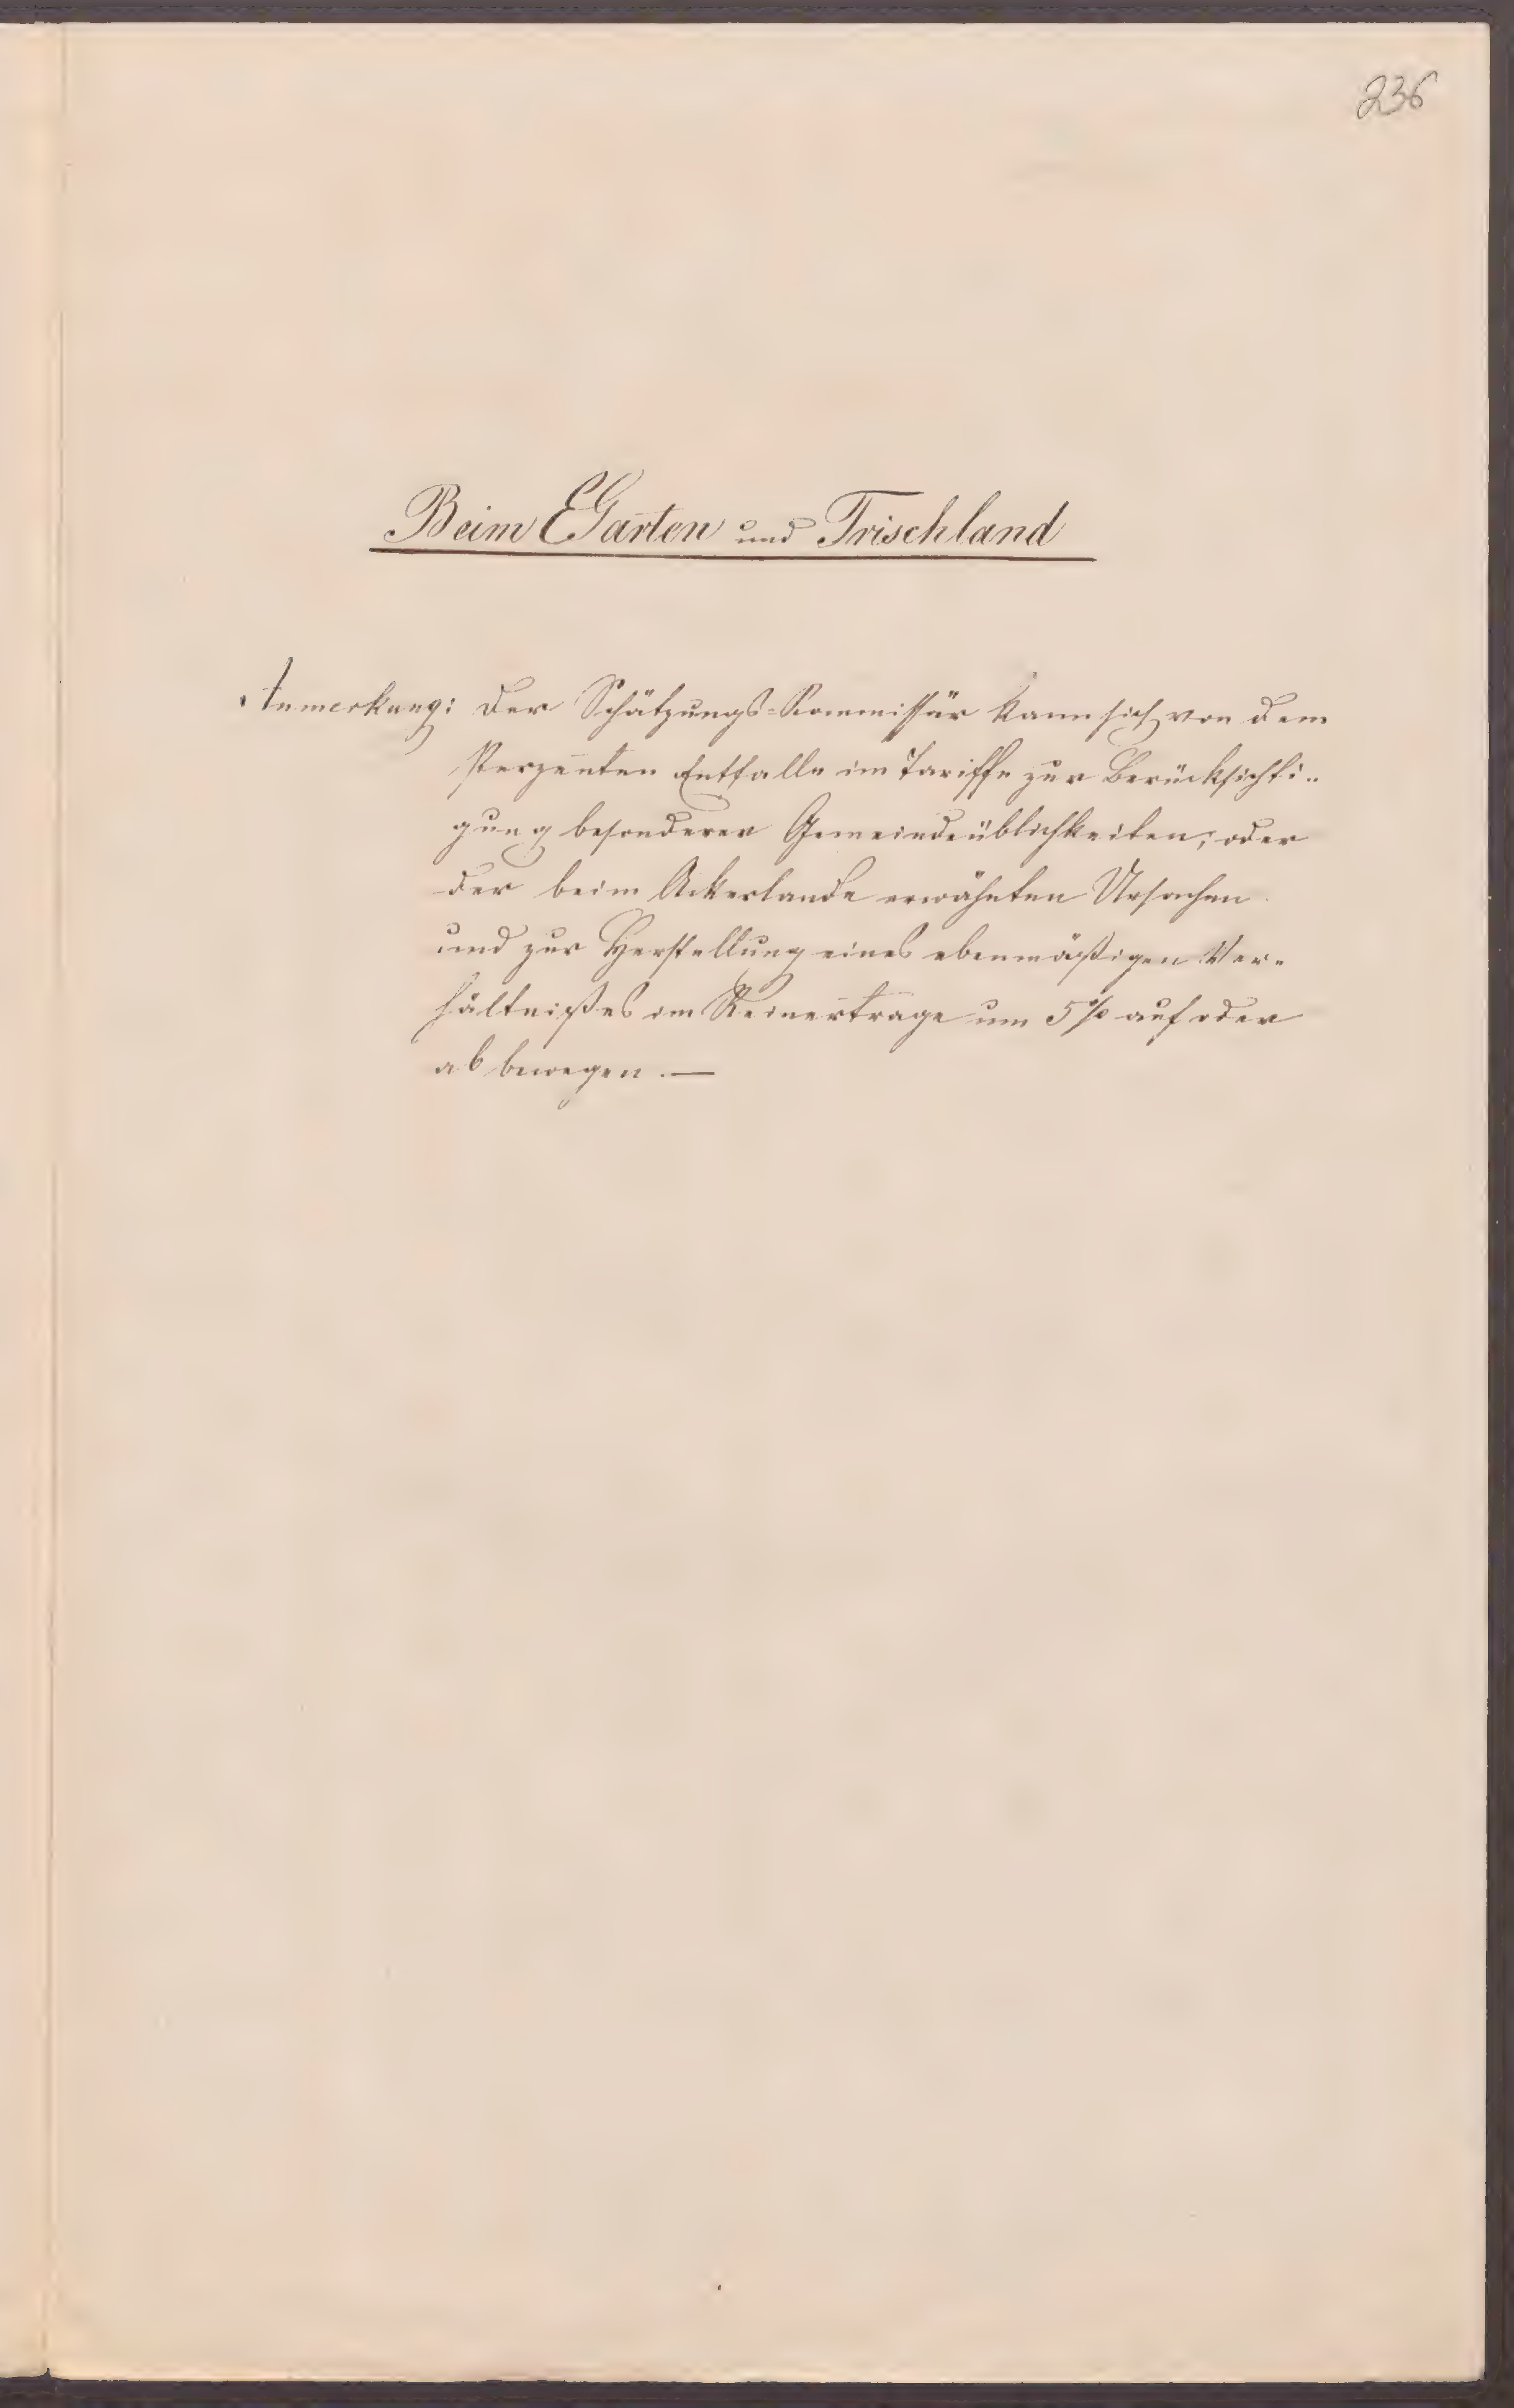 236
Beim EGarten und Trischland
Anmerkung: Der Schätzungs-Kommissär kann sich von dem
Perzenten Entfalle im Tariffe zur Berücksichti-
gung besonderer Gemeindeüblichkeiten, oder
der beim Ackerlande erwähnten Ursachen
und zur Herstellung eines ebenmäßigen Ver-
hältnißes im Reinertrage um 5% auf oder
ab bewegen. —